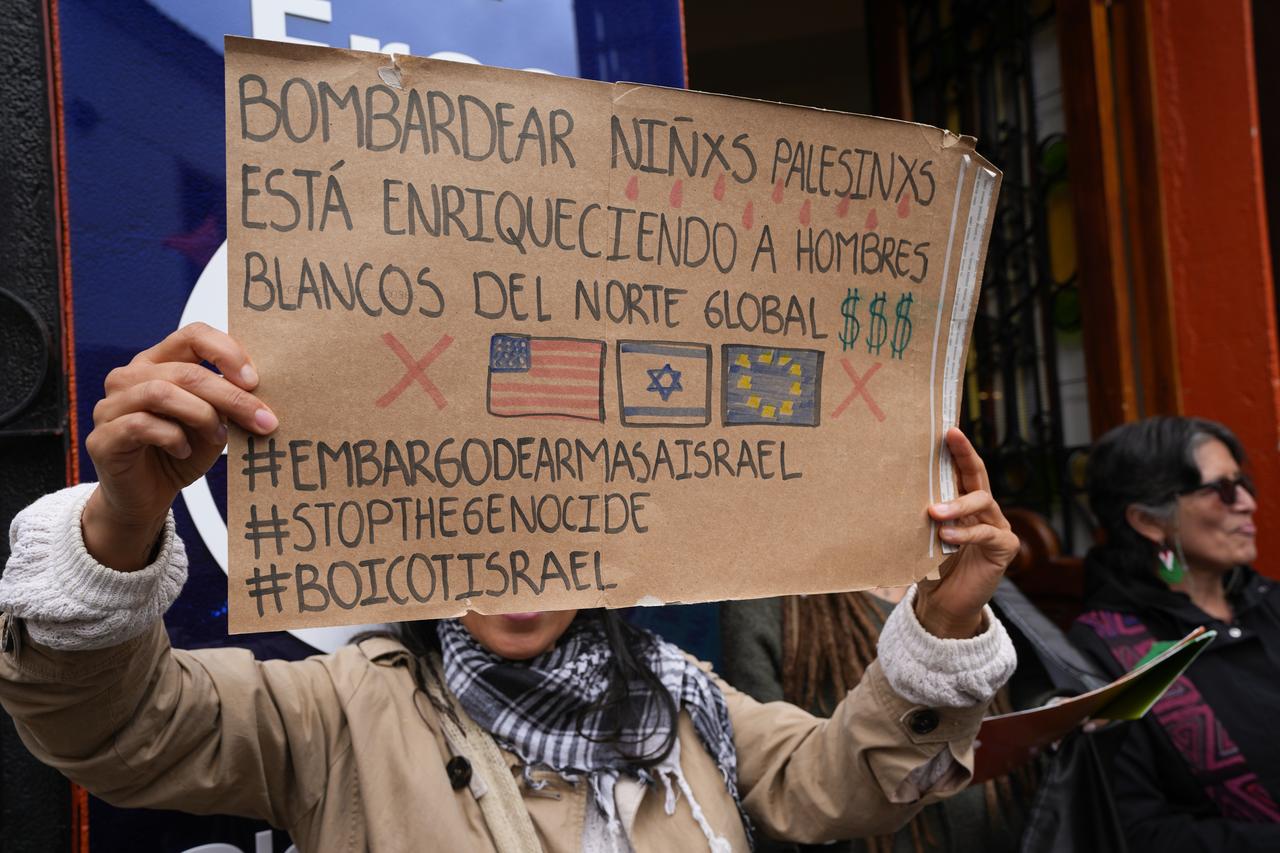 BOMBARDEAR NIÑXS PALESINXS
ESTÁ ENRIQUECIENDO A HOMBRES
BLANCOS DEL NORTE GLOBAL $$$
#EMBARGODEARMASAISRAEL
#STOPTHEGENOCIDE
#BOICOTISRAEL